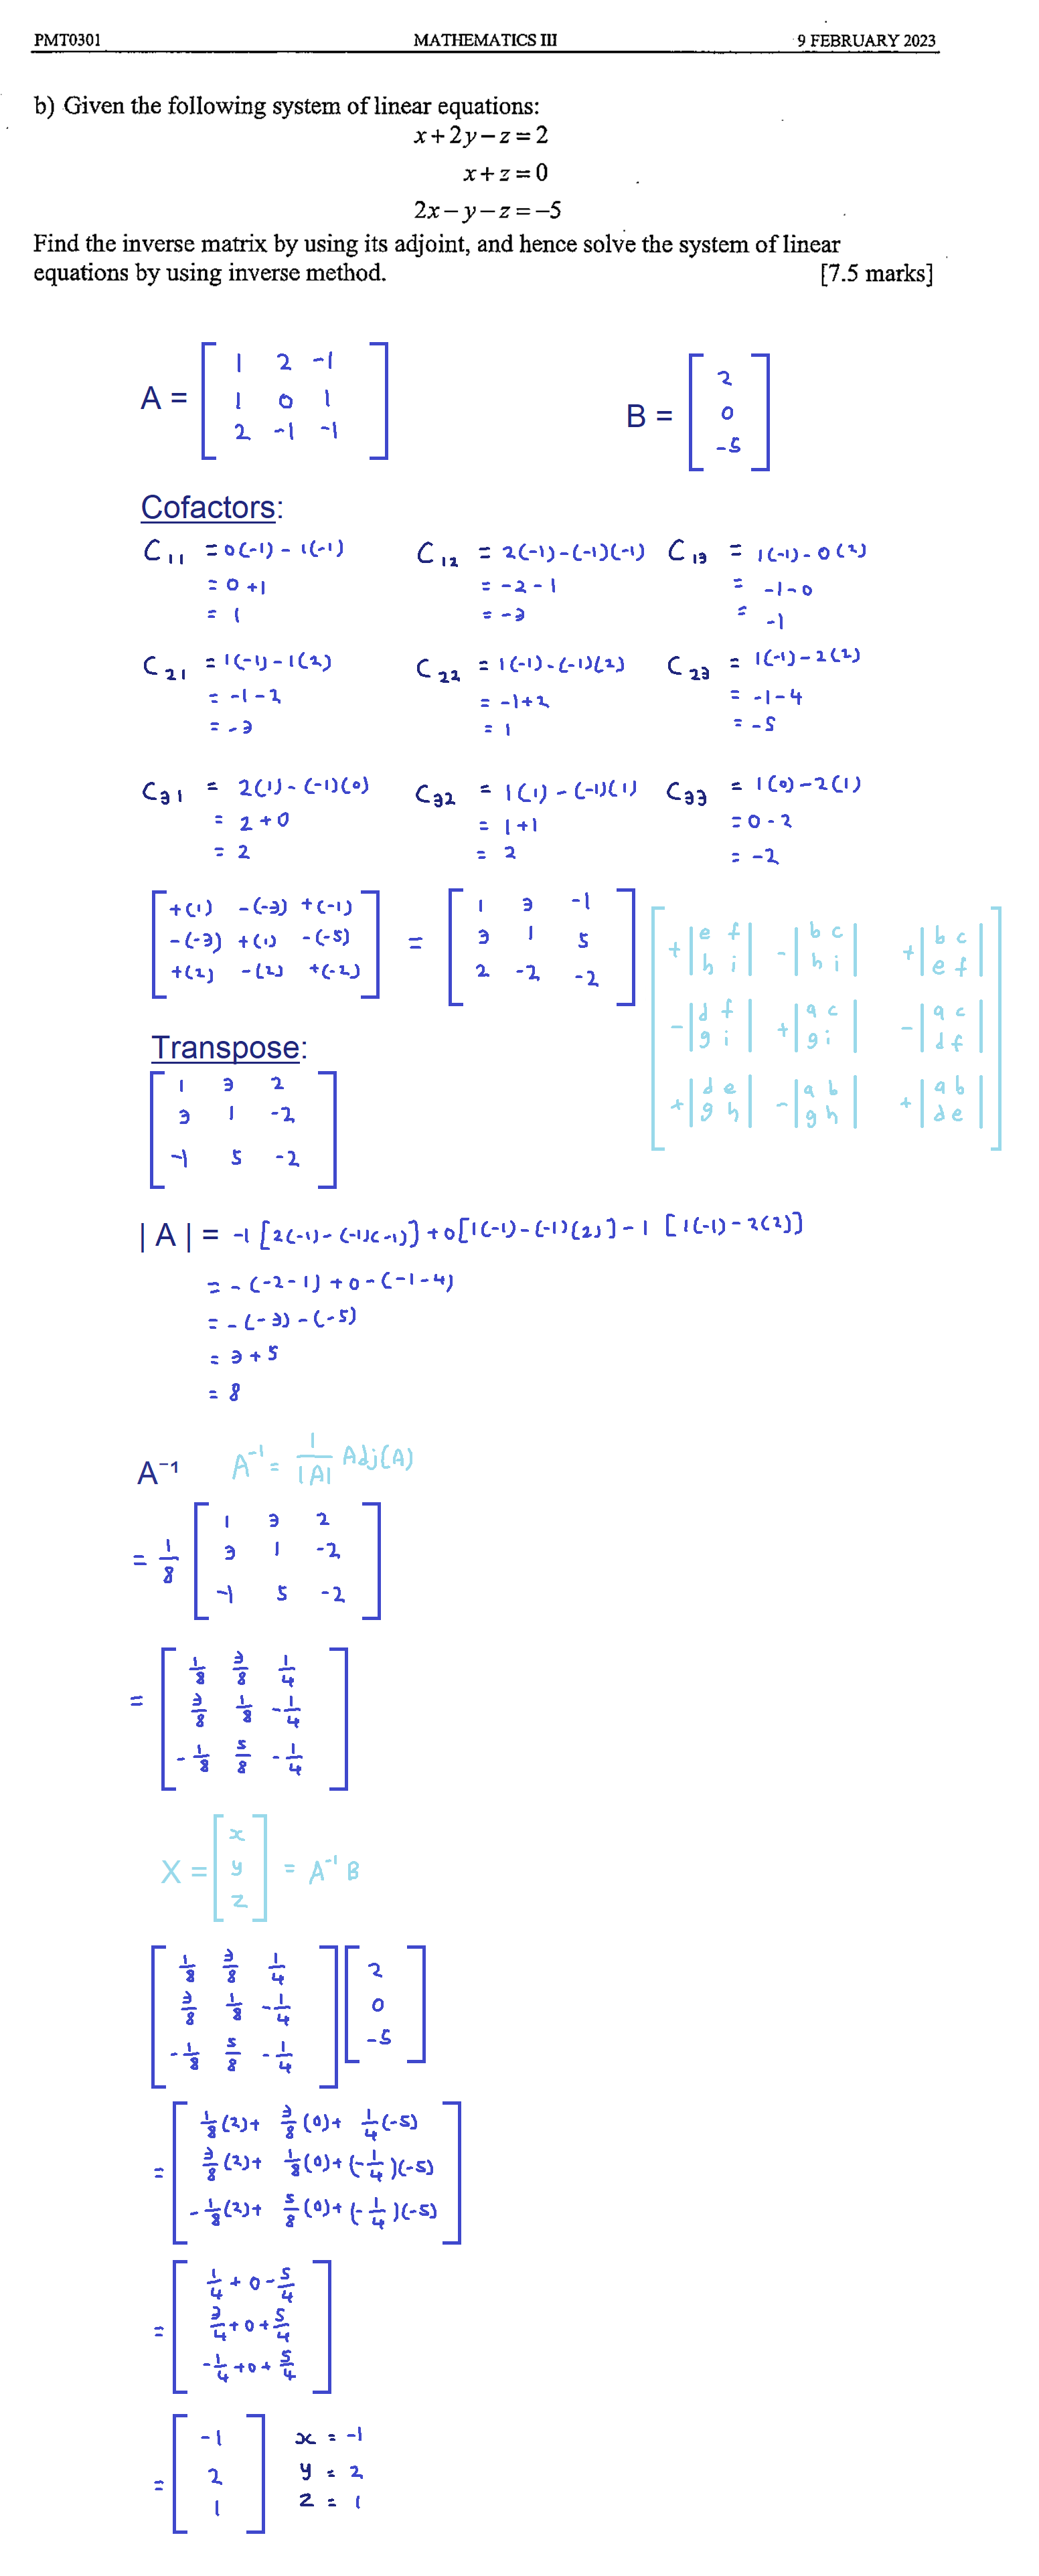 PMT0301 MATHEMATICS III 9 FEBRUARY 2023
b) Given the following system of linear equations:
x+2y−z=2
x+z=0
2x−y−z=−5
Find the inverse matrix by using its adjoint, and hence solve the system of linear
equations by using inverse method. [7.5 marks]
A = [ 1 2 -1
1 0 1
2 -1 -1 ]
B = [ 2
0
-5 ]
Cofactors:
C11 = 0(-1) - 1(-1) C12 = 2(-1)-(-1)(-1) C13 = 1(-1)-0(2)
= 0+1 = -2-1 = -1-0
= 1 = -3 = -1
C21 = 1(-1)-1(2) C22 = 1(-1)-(-1)(2) C23 = 1(-1)-2(2)
= -1-2 = -1+2 = -1-4
= -3 = 1 = -5
C31 = 2(1)-(-1)(0) C32 = 1(1)-(-1)(1) C33 = 1(0)-2(1)
= 2+0 = 1+1 = 0-2
= 2 = 2 = -2
[ +(1) -(-3) +(-1)
-(-3) +(1) -(-5)
+(2) -(2) +(-2) ]
= [ 1 3 -1
3 1 5
2 -2 -2 ]
[ +|e f| -|b c| +|b c|
|h i| |h i| |e f|
-|d f| +|a c| -|a c|
|g i| |g i| |d f|
+|d e| -|a b| +|a b|
|g h| |g h| |d e| ]
Transpose:
[ 1 3 2
3 1 -2
-1 5 -2 ]
|A| = -1[2(-1)-(-1)(-1)]+0[1(-1)-(-1)(2)]-1[1(-1)-2(2)]
= -(-2-1)+0-(-1-4)
= -(-3)-(-5)
= 3+5
= 8
A⁻¹ A⁻¹ = 1/|A| Adj(A)
= 1/8 [ 1 3 2
3 1 -2
-1 5 -2 ]
= [ 1/8 3/8 1/4
3/8 1/8 -1/4
-1/8 5/8 -1/4 ]
X = [ x
y
z ] = A⁻¹B
[ 1/8 3/8 1/4 ] [ 2
3/8 1/8 -1/4 0
-1/8 5/8 -1/4 ] -5 ]
= [ 1/8(2)+ 3/8(0)+ 1/4(-5)
3/8(2)+ 1/8(0)+(-1/4)(-5)
-1/8(2)+ 5/8(0)+(-1/4)(-5) ]
= [ 1/4+0-5/4
3/4+0+5/4
-1/4+0+5/4 ]
= [ -1 ] x = -1
2 y = 2
1 z = 1